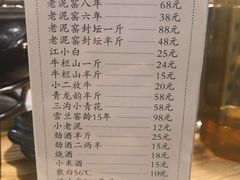 老泥窖八年 68元
老泥窖六年 38元
老泥窖封坛一斤 88元
老泥窖封坛半斤 48元
江小白 25元
牛栏山一斤 24元
牛栏山半斤 15元
小二放牛 20元
青龙韵半斤 58元
三沟小青花 58元
雪兰窖龄15年 98元
小老泥 12元
劲酒半斤 25元
劲酒二两半 15元
烧酒 18元
小米酒 15元
散白56℃ 10元